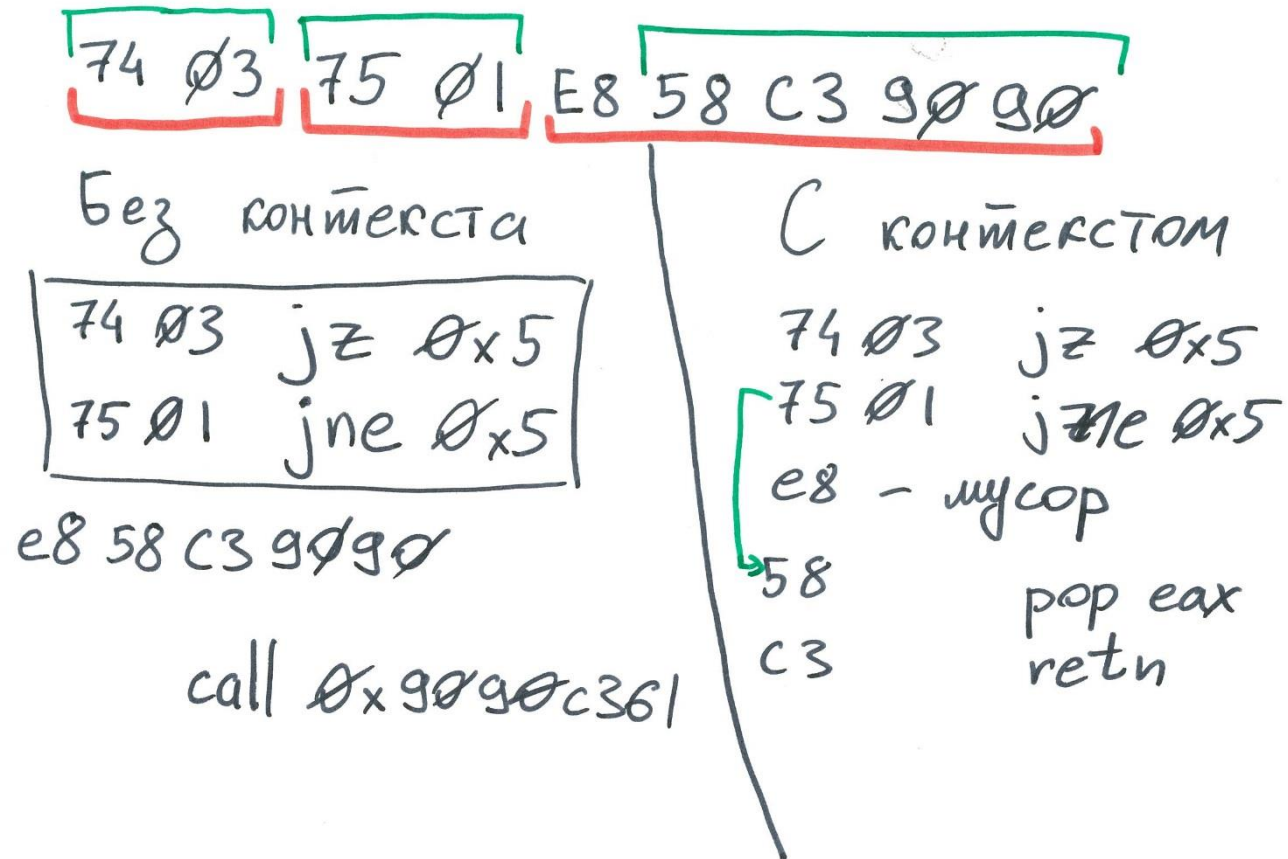 74 03 75 01 E8 58 C3 90 90
Без контекста
74 03 jz 0x5
75 01 jne 0x5
e8 58 c3 90 90
call 0x9090c361
С контекстом
74 03 jz 0x5
75 01 jne 0x5
e8 - мусор
58 pop eax
c3 retn